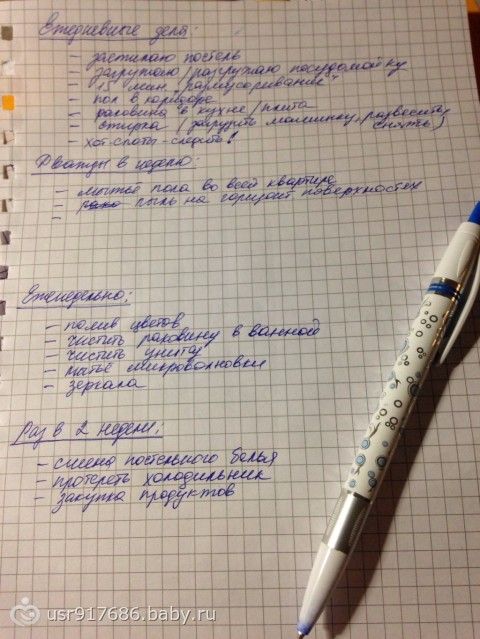 Ежедневные дела:
- застилаю постель
- загружаю/разгружаю посудомойку
- 15 мин. "размусоривание"
- пол в коридоре
- раковина в кухне/плита
- стирка (загрузить машинку, развесить,
снять)
- хот-споты - следить!
Дважды в неделю:
- мытьё пола во всей квартире
- пыль на горизонт. поверхностях
-
Еженедельно:
- полив цветов
- чистить раковину в ванной
- чистить унитаз
- мытьё микроволновки
- зеркала
Раз в 2 недели:
- смена постельного белья
- протереть холодильник
- закупка продуктов
usr917686.baby.ru